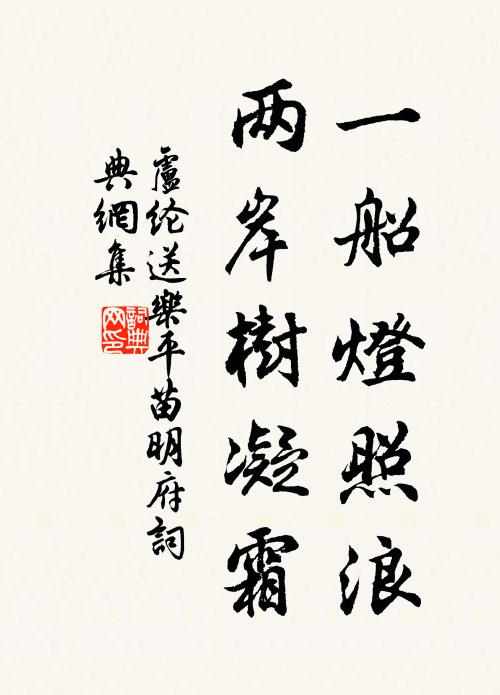 一船燈照浪
两岸樹凝霜
盧纶送樂平苗明府詞
典網集
詞典网印